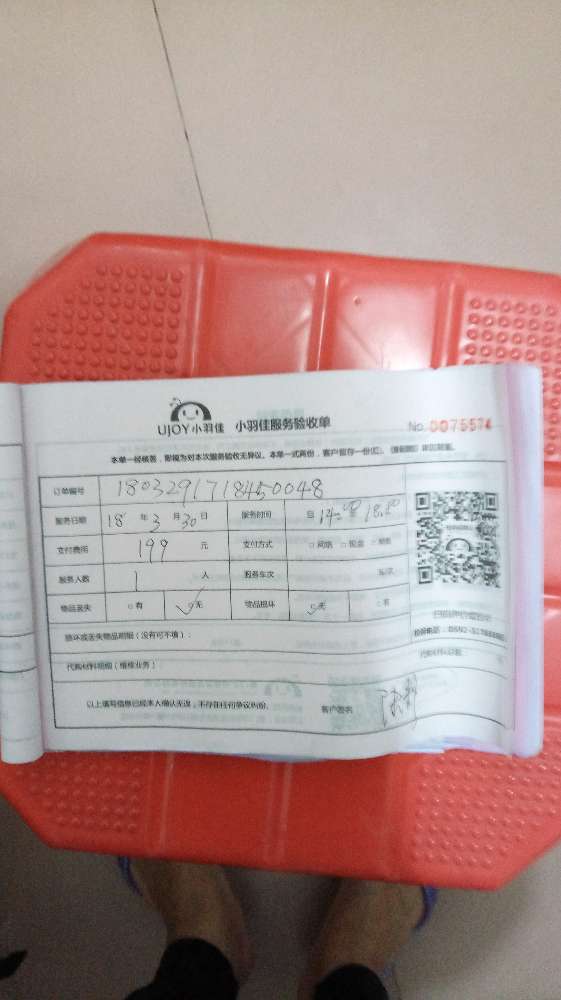 UJOY小羽佳 小羽佳服务验收单 No.0075574
本单一经核签，即视为对本次服务验收无异议。本单一式两份，客户留存一份
订单编号 1803291718450048
服务日期 18年3月30日 服务时间
支付费用 199元 支付方式 □网络 □现金
服务人数 1人 服务车次
物品丢失 □有 □无 物品损坏 □无 □有
损坏或丢失物品明细（没有可不填）：
代购材料明细（维修业务）：
以上填写信息已经本人确认无误，不存在任何争议纠纷。 客户签名